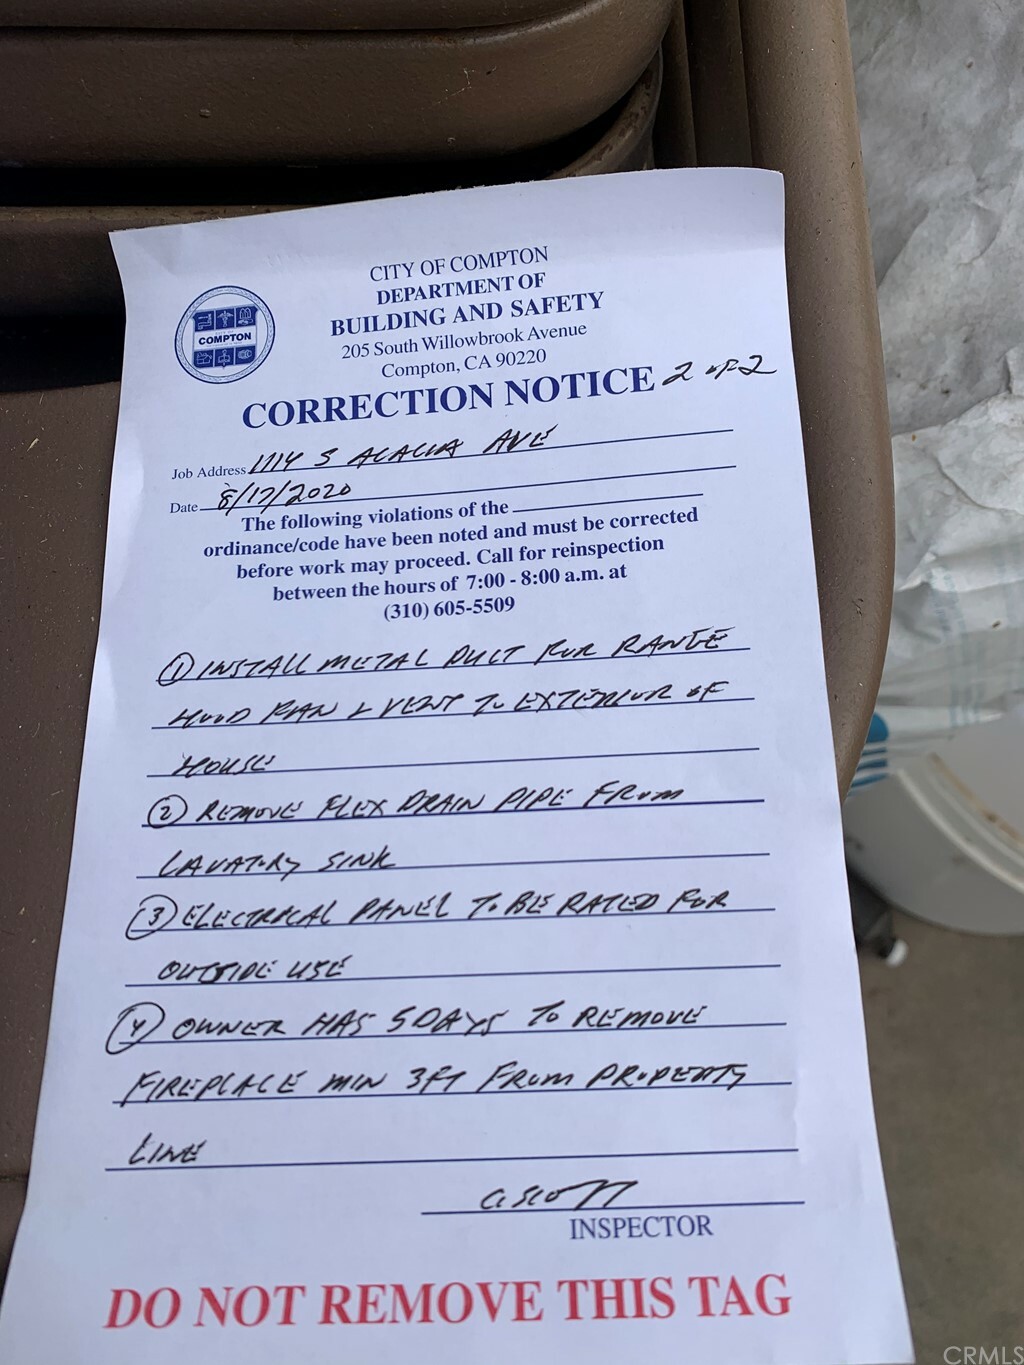 CITY OF COMPTON
DEPARTMENT OF
BUILDING AND SAFETY
205 South Willowbrook Avenue
Compton, CA 90220
COMPTON
CORRECTION NOTICE 2 OF 2
Job Address 1114 S ACACIA AVE
Date 8/17/2020
The following violations of the
ordinance/code have been noted and must be corrected
before work may proceed. Call for reinspection
between the hours of 7:00 - 8:00 a.m. at
(310) 605-5509
① INSTALL METAL DUCT FOR RANGE
HOOD FAN & VENT TO EXTERIOR OF
HOUSE
② REMOVE FLEX DRAIN PIPE FROM
LAVATORY SINK
③ ELECTRICAL PANEL TO BE RATED FOR
OUTSIDE USE
④ OWNER HAS 5 DAYS TO REMOVE
FIREPLACE MIN 3FT FROM PROPERTY
LINE
INSPECTOR
DO NOT REMOVE THIS TAG
CRMLS